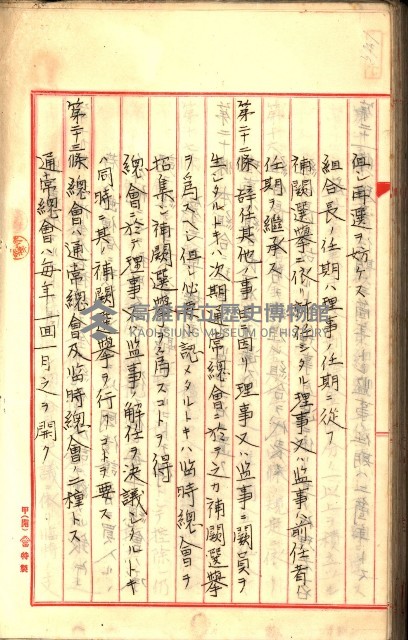 但シ再選ヲ妨ケス
組合長ノ任期ハ理事ノ任期ニ從フ
補闕選擧ニ依リ就任シタル理事又ハ監事ハ前任者ノ
任期ヲ繼承ス
第二十二條 辭任其他ノ事由ニ因リ理事又ハ監事ニ闕員ヲ
生シタルトキハ次期通常總會ニ於テ之カ補闕選擧
ヲ爲スヘシ但シ必要ト認メタルトキハ臨時總會ヲ
招集シ補闕選擧ヲ爲スコトヲ得
總會ニ於テ理事又ハ監事ノ解任ヲ決議シタルトキ
ハ同時ニ其ノ補闕選擧ヲ行フコトヲ要ス
第二十三條 總會ハ通常總會及臨時總會ノ二種トス
通常總會ハ每年一回一月之ヲ開ク
高雄市立歷史博物館
KAOHSIUNG MUSEUM OF HISTORY